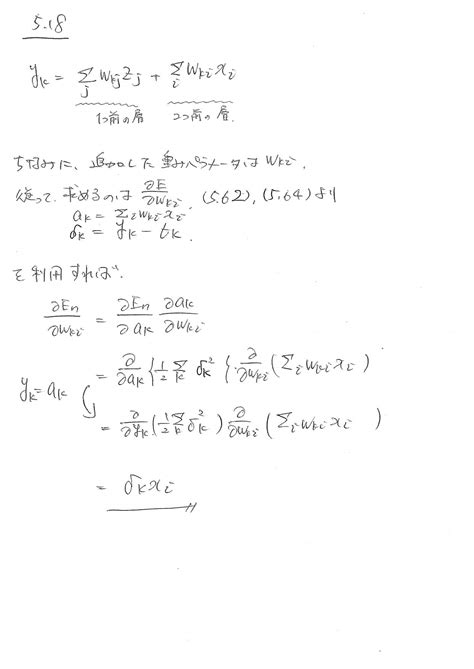 5.18
y_k = Σ_j w_kj z_j + Σ_i w_ki x_i
1つ前の層 2つ前の層.
ちなみに、追加した重みパラメータは w_ki.
従って、求めるのは ∂E/∂w_ki. (5.62), (5.64) より
a_k = Σ_i w_ki x_i
δ_k = y_k − t_k.
を利用すれば.
∂E_n/∂w_ki = ∂E_n/∂a_k ∂a_k/∂w_ki
= ∂/∂a_k { 1/2 Σ_k δ_k^2 { · ∂/∂w_ki (Σ_i w_ki x_i)
y_k = a_k
= ∂/∂y_k ( 1/2 Σ_k δ_k^2 ) ∂/∂w_ki ( Σ_i w_ki x_i )
= δ_k x_i